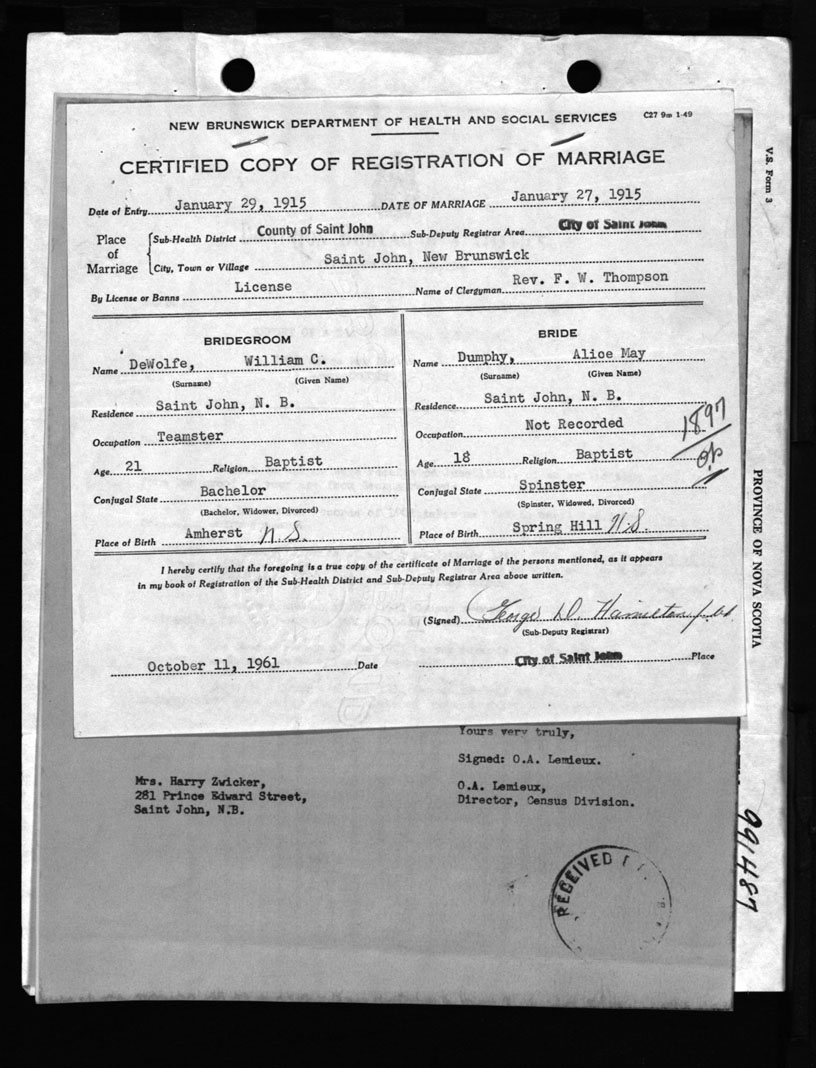 NEW BRUNSWICK DEPARTMENT OF HEALTH AND SOCIAL SERVICES C27 9m 1-49
CERTIFIED COPY OF REGISTRATION OF MARRIAGE
Date of Entry January 29, 1915 DATE OF MARRIAGE January 27, 1915
Place of Marriage
Sub-Health District County of Saint John Sub-Deputy Registrar Area City of Saint John
City, Town or Village Saint John, New Brunswick
By License or Banns License Name of Clergyman Rev. F. W. Thompson
BRIDEGROOM
Name DeWolfe, William C.
(Surname) (Given Name)
Residence Saint John, N. B.
Occupation Teamster
Age 21 Religion Baptist
Conjugal State Bachelor
(Bachelor, Widower, Divorced)
Place of Birth Amherst N.S.
BRIDE
Name Dumphy, Alice May
(Surname) (Given Name)
Residence Saint John, N. B.
Occupation Not Recorded
1897
Age 18 Religion Baptist
Conjugal State Spinster
(Spinster, Widowed, Divorced)
Place of Birth Spring Hill N.S.
I hereby certify that the foregoing is a true copy of the certificate of Marriage of the persons mentioned, as it appears
in my book of Registration of the Sub-Health District and Sub-Deputy Registrar Area above written.
(Signed) George D Hamilton
(Sub-Deputy Registrar)
October 11, 1961 Date City of Saint John Place
Yours very truly,
Signed: O.A. Lemieux.
O.A. Lemieux,
Director, Census Division.
Mrs. Harry Zwicker,
281 Prince Edward Street,
Saint John, N.B.
RECEIVED
V.S. Form 3
PROVINCE OF NOVA SCOTIA
991487